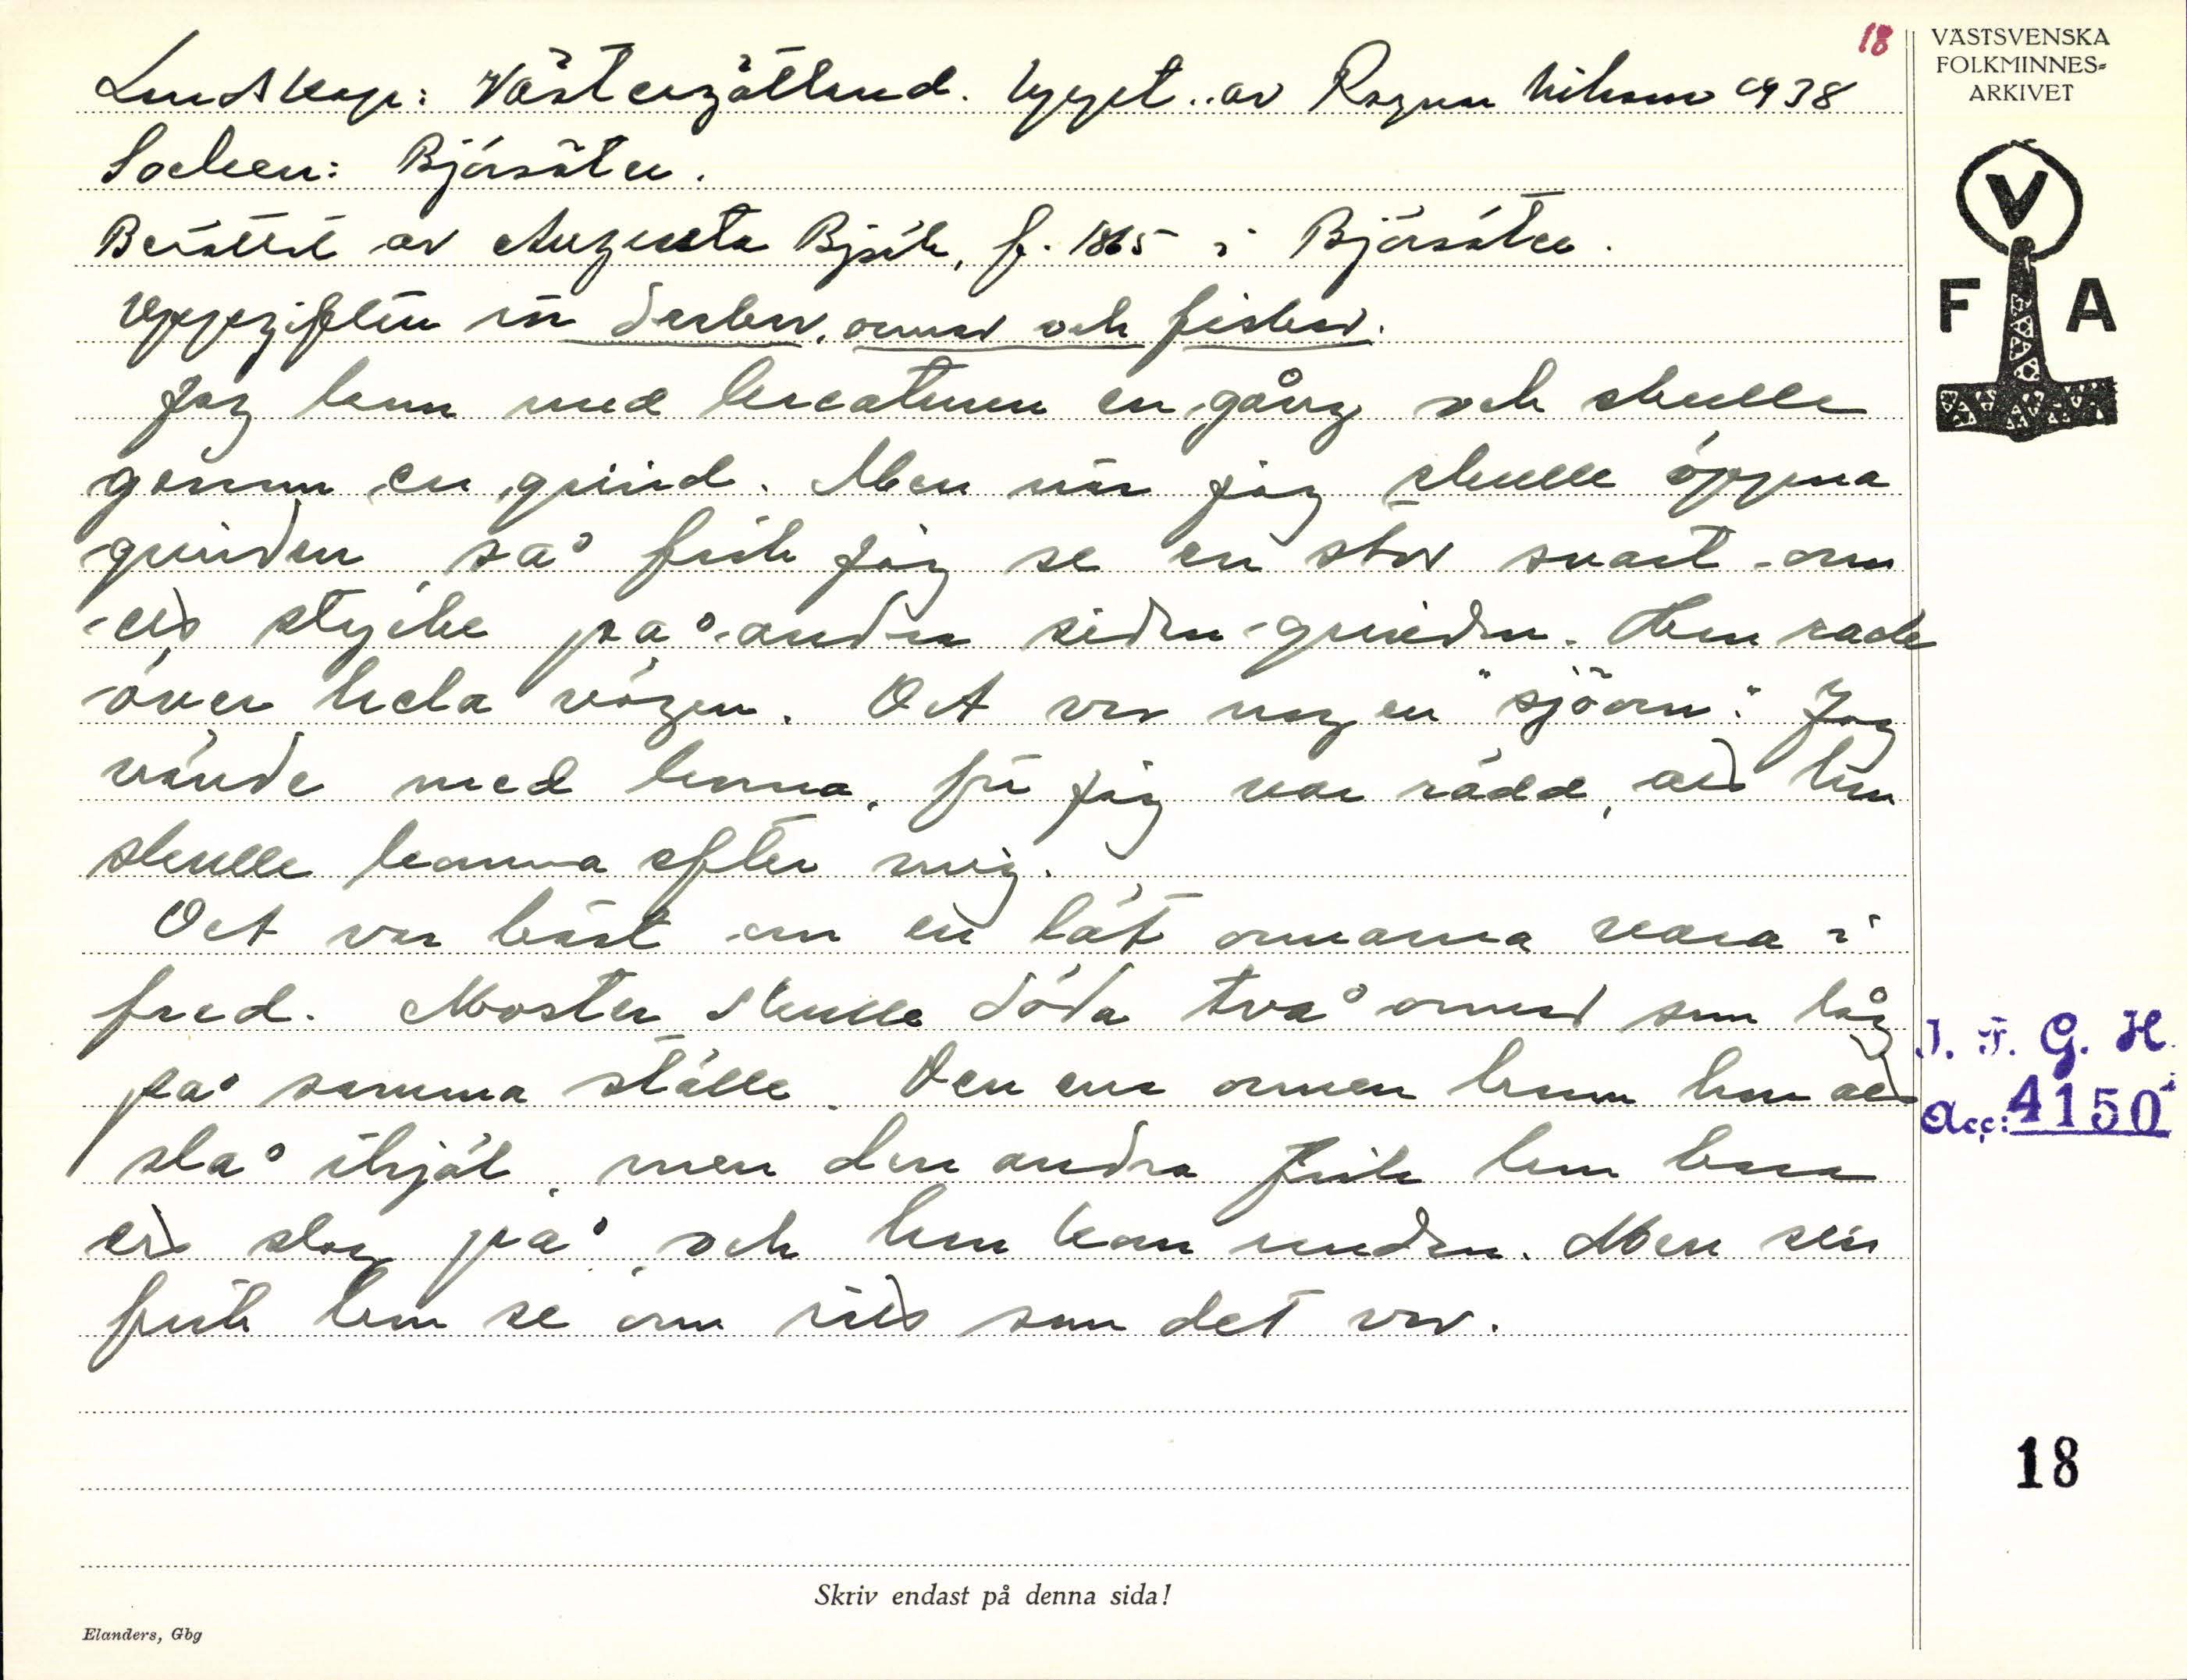 18
VÄSTSVENSKA
FOLKMINNES-
ARKIVET
Landskap: Västergötland. Uppt. av Ragnar Nilsson 1938
Socken: Björsäter.
Berättat av Augusta Björk, f. 1865 i Björsäter.
Uppgiften rör ormar och fiskar.
Jag kom med kreaturen en gång och skulle
genom en grind. Men när jag skulle öppna
grinden, så fick jag se en stor svart orm
ett stycke på andra sidan grinden. Han rade
över hela vägen. Det var nog en "sjöorm". Jag
vände med korna, för jag var rädd, att han
skulle komma efter mig.
Det var bäst om en lät ormarna vara i
fred. Moster skulle döda två ormar som låg
på samma ställe. Den ena ormen kom hon att
slå ihjäl, men den andra fick hon bara
ett slag på och han kom undan. Men sen
fick hon se orm rätt som det var.
V
F A
I. F. G. H.
Acc: 4150
18
Skriv endast på denna sida!
Elanders, Gbg